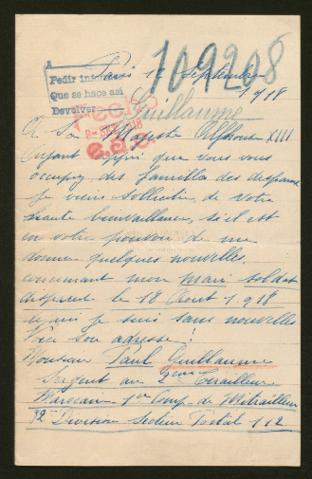 109208
A
Pedir in
Que se hace así
Devolver
Paris 12 Septembre
1918
Guillaume
A Sa Majesté Alphonse XIII
Ayant appri que vous vous
occupiez des familles des disparus
Je viens sollicitée de votre
haute bienveillance, si il est
en votre pouvoir de me
donner quelques nouvelles
concernant mon mari soldat
disparut le 18 Aout 1918
depuis je suis sans nouvelles
Voici son adresse!
Monsieur Paul Guillaume
Sergent au 2eme Tirailleur
Marocain 1re Comp. de Mitrailleur
Division Secteur Postal 112